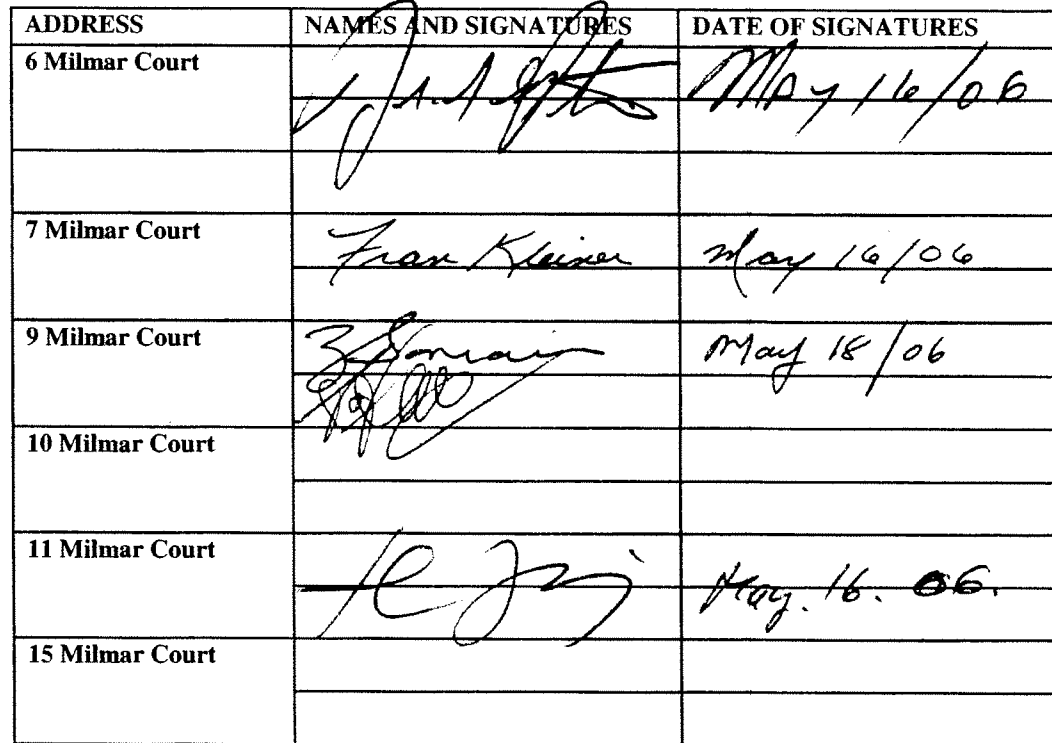 ADDRESS NAMES AND SIGNATURES DATE OF SIGNATURES
6 Milmar Court May 16/06
7 Milmar Court Fran Kleiner May 16/06
9 Milmar Court May 18/06
10 Milmar Court
11 Milmar Court May. 16. 06.
15 Milmar Court